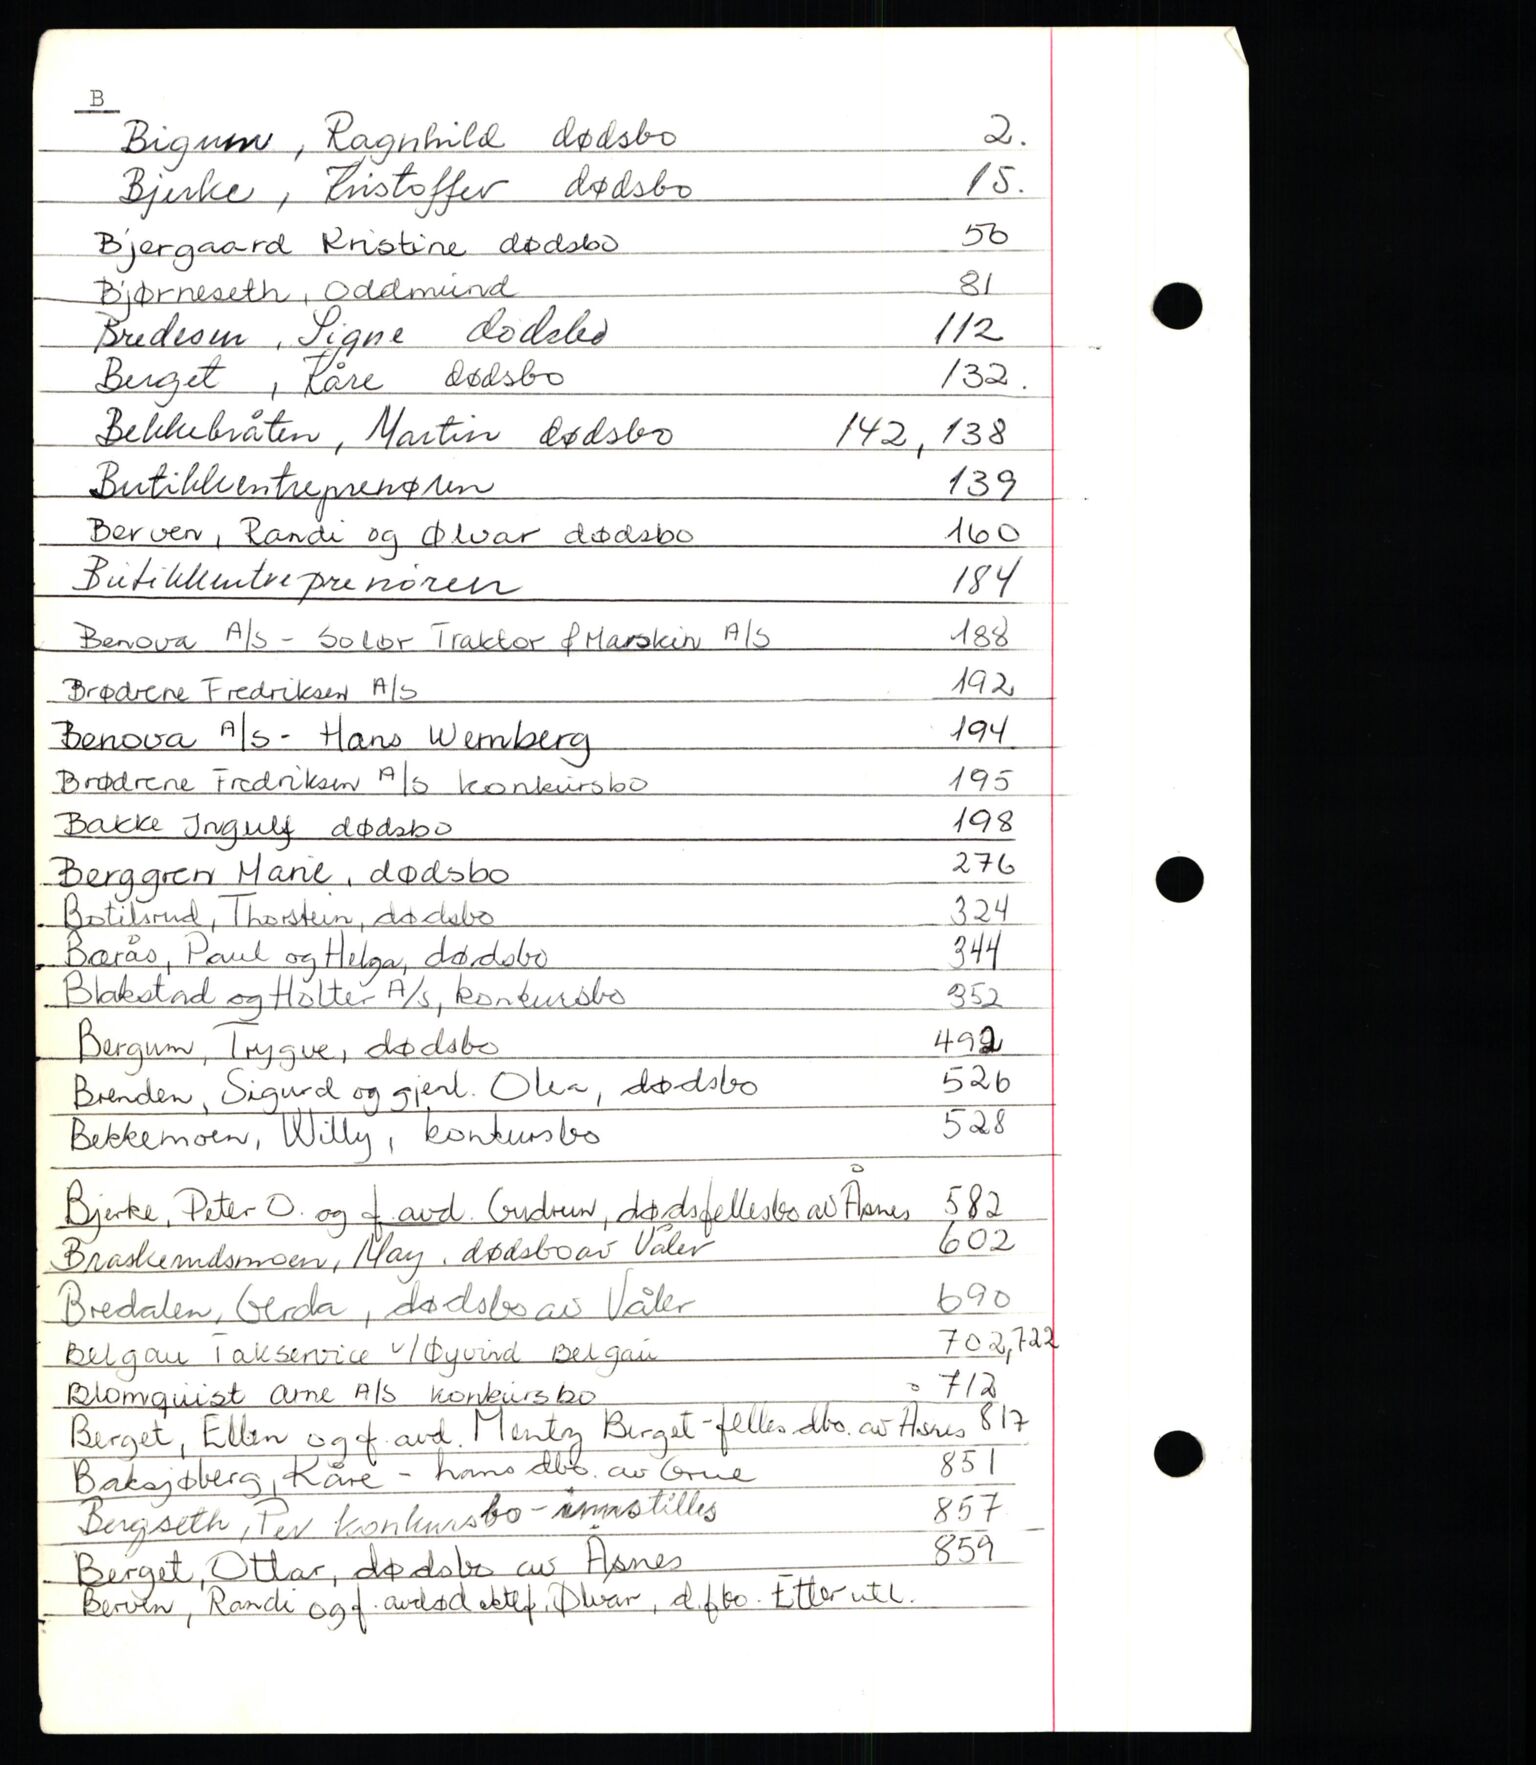 B
Bigum, Ragnhild dødsbo 2.
Bjerke, Kristoffer dødsbo 15.
Bjergaard Kristine dødsbo 56
Bjørneseth, Oddmund 81
Bredesen, Signe dødsbo 112
Berget, Kåre dødsbo 132.
Bekkebråten, Martin dødsbo 142, 138
Butikkentreprenøren 139
Berven, Randi og Ølvar dødsbo 160
Butikkentreprenøren 184
Benova A/S - Solør Traktor & Marskin A/S 188
Brødrene Fredriksen A/S 192
Benova A/S - Hans Wernberg 194
Brødrene Fredriksen A/S konkursbo 195
Bakke Ingulf dødsbo 198
Berggren Marie, dødsbo 276
Botilsrud, Thorstein, dødsbo 324
Børås, Paul og Helga, dødsbo 344
Blakstad og Holter A/s, konkursbo 352
Bergum, Trygve, dødsbo 492
Brenden, Sigurd og gjenl. Olea, dødsbo 526
Bekkemoen, Willy, konkursbo 528
Bjerke, Peter O. og f. avd. Gudrun, dødsfellesbo av Åsnes 582
Braskerudsmoen, May, dødsbo av Våler 602
Bredalen, Gerda, dødsbo av Våler 690
Belgau Takservice v/Øyvind Belgau 702,722
Blomquist Arne A/S konkursbo 712
Berget, Ellen og f. avd. Mentz Berget - felles dbo. av Åsnes 817
Baksjøberg, Kåre - hans dbo. av Grue 851
Bergseth, Per konkursbo - innstilles 857
Berget, Ottar, dødsbo av Åsnes 859
Berven, Randi og f. avdød ektef. Ølvar, d.fbo. Etter utl.